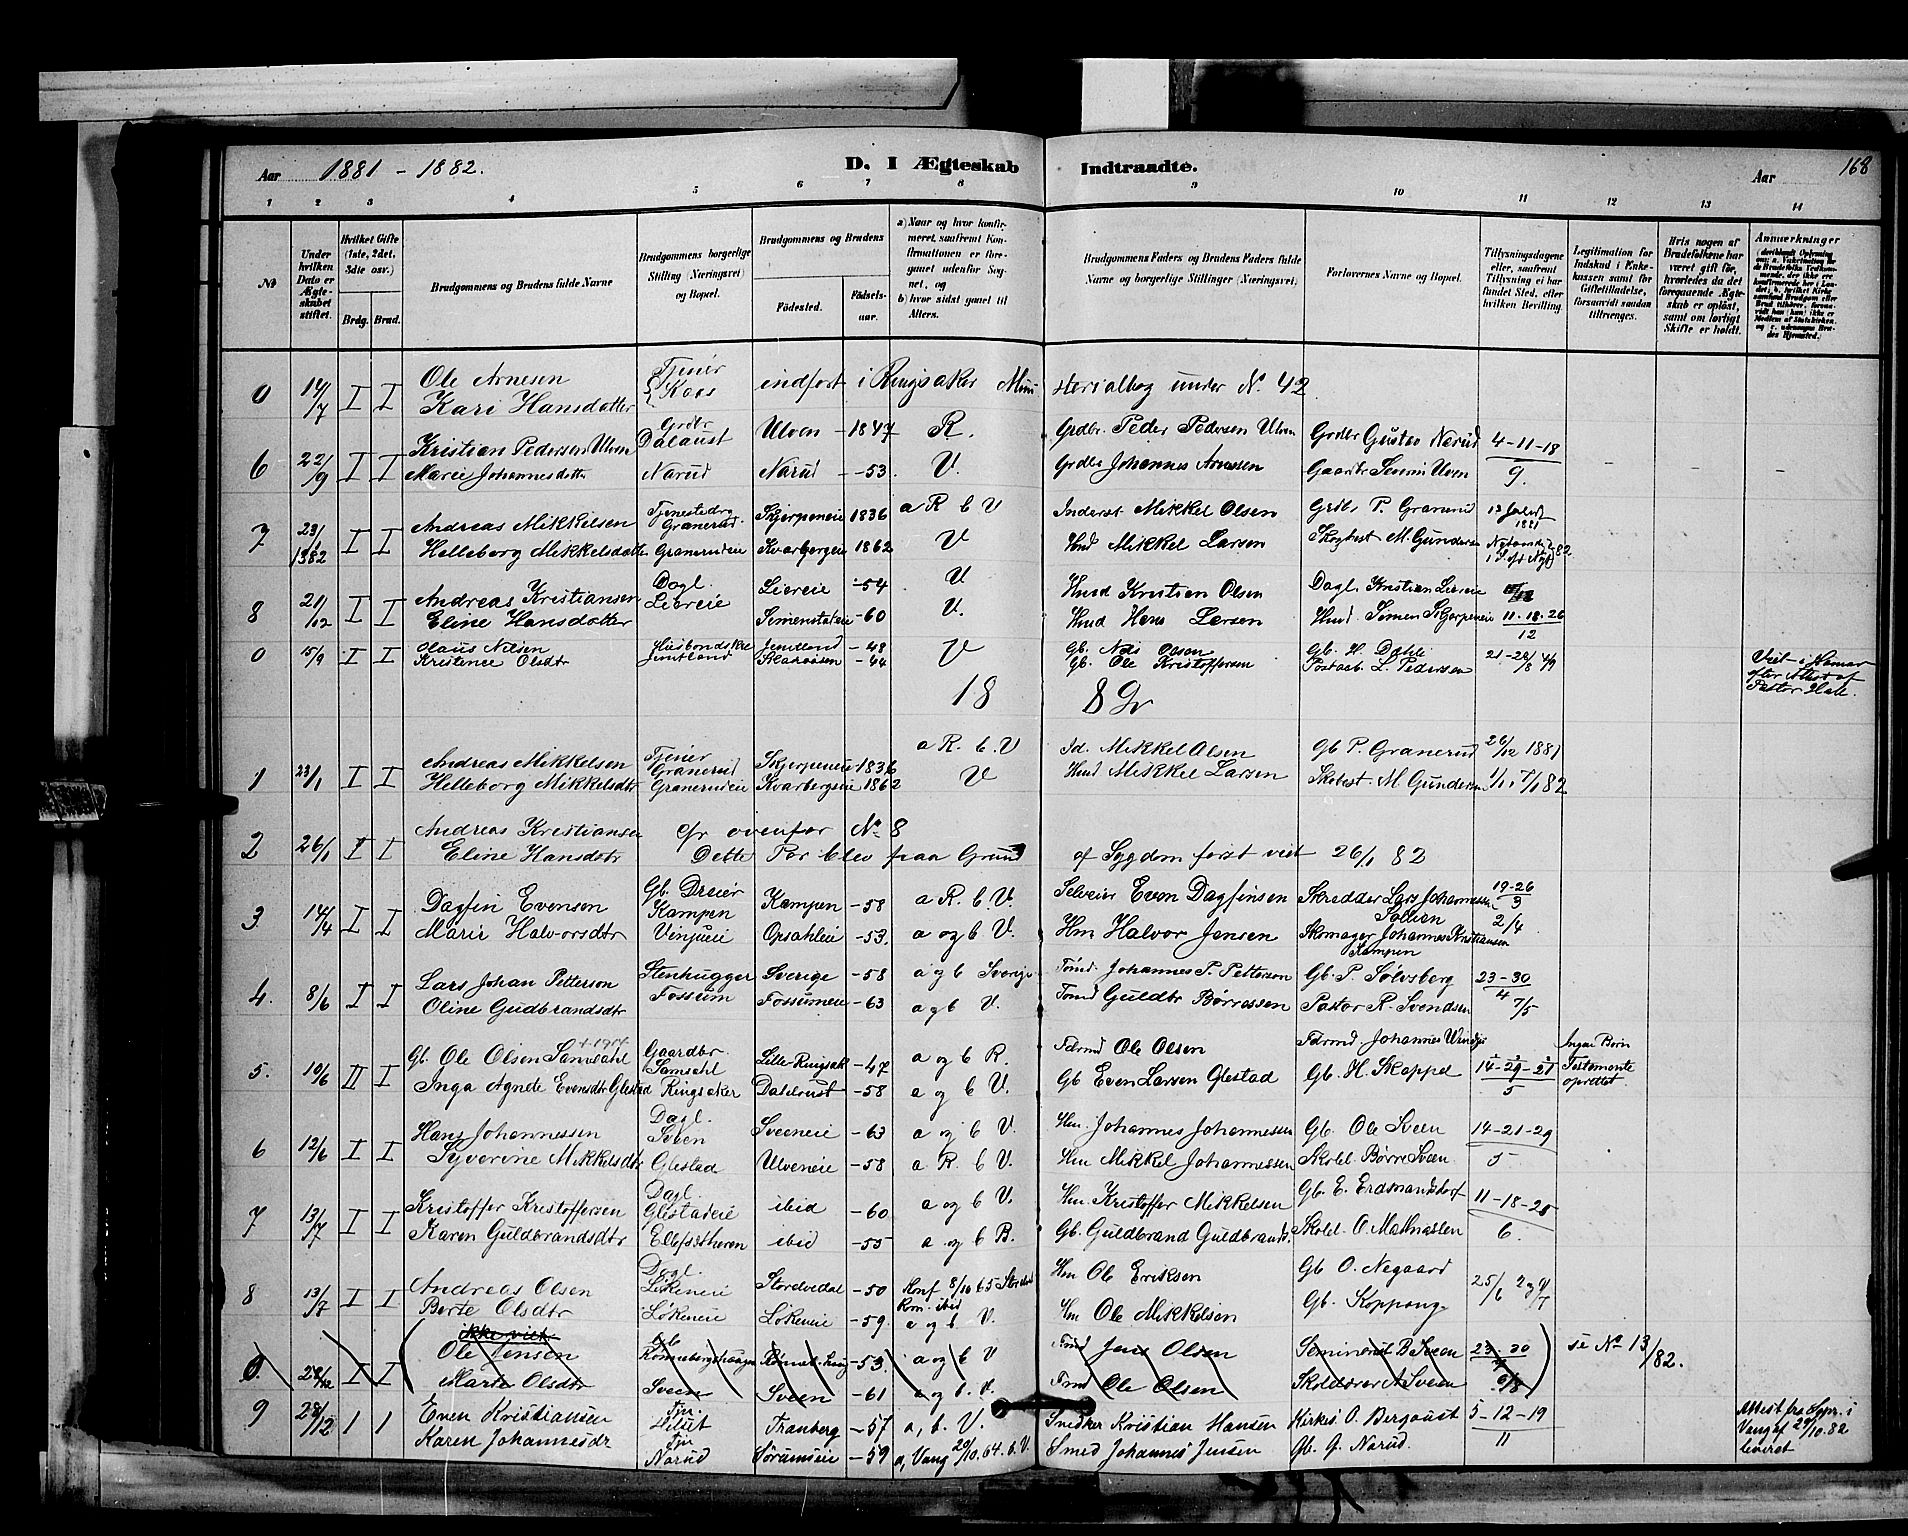 Aar 1881 - 1882. D. I Ægteskab Indtraadte. Aar 168
1 2 3 4 5 6 7 8 9 10 11 12 13 14
№
Under hvilken Dato er Ægteskabet stiftet.
Hvilket Gifte (1ste, 2det, 3die osv.)
Brdg. Brud.
Brudgommens og Brudens fulde Navne
Brudgommens borgerlige Stilling (Næringsvei) og Bopæl.
Brudgommens og Brudens
Fødested. Fødselsaar.
a) Naar og hvor konfirmeret, saafremt Konfirmationen er foregaaet udenfor Sognet, og
b) hvor sidst gaaet til Alters.
Brudgommens Faders og Brudens Faders fulde Navne og borgerlige Stillinger (Næringsvei).
Forlovernes Navne og Bopæl.
Tillysningsdagene eller, saafremt Tillysning ei har fundet Sted, efter hvilken Bevilling
Legitimation for Indskud i Enkekassen samt for Giftetilladelse, forsaavidt saadan tiltrænges.
Hvis nogen af Brudefolkene har været gift før, hvorledes da det foregaaende Ægteskab er opløst, samt om lovligt Skifte er holdt.
Anmærkninger
0 14/7 I I Ole Arnesen Tjener Koos indført i Ringsaker Ministerialbog under N. 42
Kari Hansdatter
6 22/9 I I Kristian Pedersen Ulven Grdbr Dalaust Ulven - 1847 R. Grdbr. Peder Pedersen Ulven Grdbr Gustav Narud 4-11-18
Marie Johannesdatter Narud Narud -53. V. Grdbr Johannes Arnesen Gaardbr Severin Ulven 9.
7 23/1 1882 I I Andreas Mikkelsen Tjenestedrg Granerud. Skjerpeneie 1836 a R b V Inderst Mikkel Olsen Grdbr P. Granerud
Helleborg Mikkelsdatter Granerudeie Kvarbergeie 1862 V Hmd Mikkel Larsen Skogbest M. Gundersen
8 21/12 I I Andreas Kristiansen Dagl. Liereie Liereie -54 V Hmd Kristian Olsen Dagl Kristian Liereie
Eline Hansdatter Simenstadeie -60 V. Hmd Hans Larsen Hmd Simen Skjerpeneie 11-18-26 12
0 15/9 I I Olaus Nilsen Jemtland -48 V Gb. Nils Olsen Gb. H. Dahl 21-28/8 4/9
Kristence Olsdtr Jemtland -44 Gb. Ole Kristoffersen L. Pedersen
Viet i Hamar efter Attest af Pastor Hall.
18 8 Gr
1 23/1 I I Andreas Mikkelsen Tjener Granerud Skjerpeneie 1836 a R. b. V Id. Mikkel Olsen Gb P. Granerud 26/12 1881
Helleborg Mikkelsdtr Granerudeie Kvarbergseie 1862 V Hmd Mikkel Larsen Skobest M Gundersen 1/1, 7/1 82
2 26/1 I I Andreas Kristiansen cfr ovenfor № 8
Eline Hansdatr Dette Par blev paa Grund af Sygdom først viet 26/1 82
3 14/4 I I Dagfin Evensen Gb. Dreier Kampen Kampen -58 a R. b. V. Selveier Even Dagfinsen Skredder Lars Johannessen 19-26/3
Marie Halvorsdtr Vinjueie Opsahleie -53. a og b V. Hm Halvor Jensen Skomager Johannes Kristiansen Kampen 2/4
4. 8/6 I I Lars Johan Petterson Stenhugger Fossum Sverige -58 a og b Sverige Johannes P. Petterson Gb. P. Sølvsberg 23-30/4
Oline Gudbrandsdtr Fossumeie -63 a og b V. Guldbr Børressen Pastor R. Svendsen 7/5
5. 10/6 II I Gb. Ole Olsen Samsahl Gaardbr. Samsahl Lille-Ringsak -47 a og b R. Ole Olsen Johannes 14-29-21
Inga Agnete Evensdtr Glestad Ringsaker Dalebrust -58 a og b V. Gb Even Larsen Glestad Gb. H. Skappel 5
Ingen Børn Testamente oprettet.
6 12/6 I I Hans Johannessen Dagl. Sveen Sveeneie -63 a og b V. Hm. Johannes Johannessen Gb. Ole Sveen 14-21-29
Syverine Mikkelsdtr Glestad Ulveneie -58 a R. b V. Hm Mikkel Johannessen Skolel. Børre Sveen. 5
7 13/7 I I Kristoffer Kristoffersen Dagl. Glestadeie ibid -60 a og b V. Hm. Kristoffer Mikkelsen Gb. E. Erdmansdorf 11-18-25
Karen Guldbrandsdtr ibid -55 a og b B. Gb. Guldbrand Guldbrands. Skolel. O. Mathiassen 6.
8 13/7 I I Andreas Olsen Dagl. Løkeneie Storelvedal -50 Konf 8/10 65 Hm Ole Eriksen Gb O. Negaard 25/6
Berte Olsdtr Løkeneie Løkeneie -59. a og b V. Hm Ole Mikkelsen Gb. Koppang
ikke viet
0. 28/12 I I Ole Jensen -53. a og b V Jens Olsen B. Sveen 23-30
Marte Olsdtr Sveen Sveen -61 a og b. V. Ole Olsen Skolelærer A. Sveen 6/8
se № 13/82.
9 28/12 1 1 Even Kristiansen Tjn. Tranberg -57 a, b. V. Snedker Kristian Hansen Kirkes. O. Bergaust 5-12-19
Karen Johannesdr Tjn Narud Sørumseie -59 a, Vang 20/10.64. b. V. Smed Johannes Jensen Gb. G. Narud. 11
Attest fra Sgpr. i Vang af 29/10.82 leveret